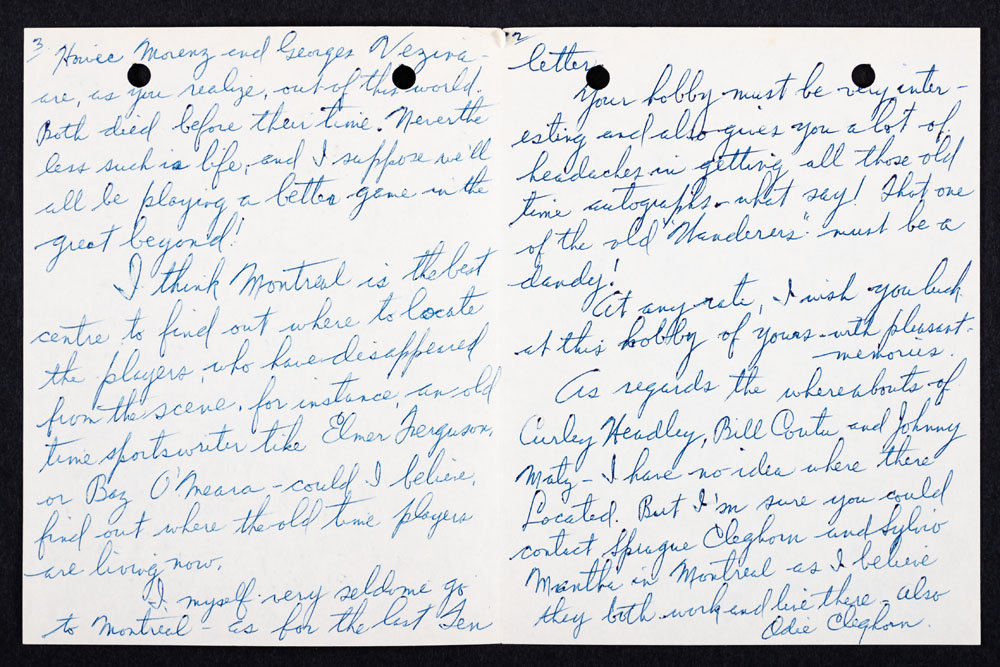 3
Howie Morenz and Georges Vezina -
are, as you realize, out of this world.
Both died before their time. Neverthe
less such is life, and I suppose we'll
all be playing a better game in the
great beyond!
I think Montreal is the best
centre to find out where to locate
the players, who have disappeared
from the scene, for instance, an old
time sportswriter like Elmer Ferguson,
or Baz O'Meara - could I believe,
find out where the old time players
are living now.
I myself very seldome go
to Montreal - as for the last Ten
2
letter.
Your hobby must be very inter-
esting and also gives you a lot of
headaches in getting all those old
time autographs - what say! That one
of the old "Wanderers" must be a
dandy!
At any rate, I wish you luck
at this hobby of yours - with pleasant-
memories.
As regards the whereabouts of
Curley Headley, Bill Coutu and Johnny
Matz - I have no idea where there
Located. But I'm sure you could
contact Sprague Cleghorn and Sylvio
Mantha in Montreal as I believe
they both work and live there - also
Odie Cleghorn.